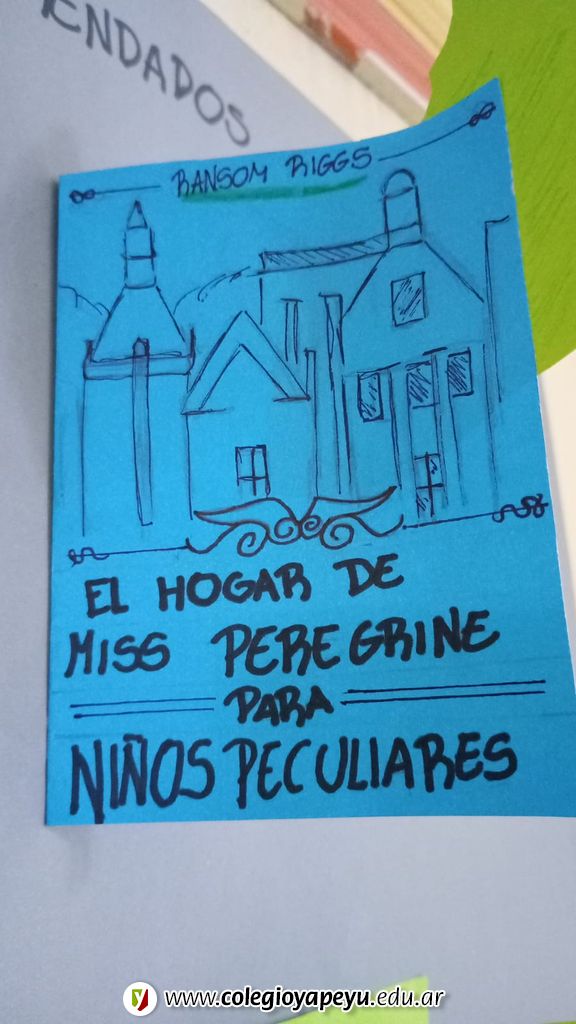 ENDADOS
RANSOM RIGGS
EL HOGAR DE
MISS PEREGRINE
PARA
NIÑOS PECULIARES
www.colegioyapeyu.edu.ar